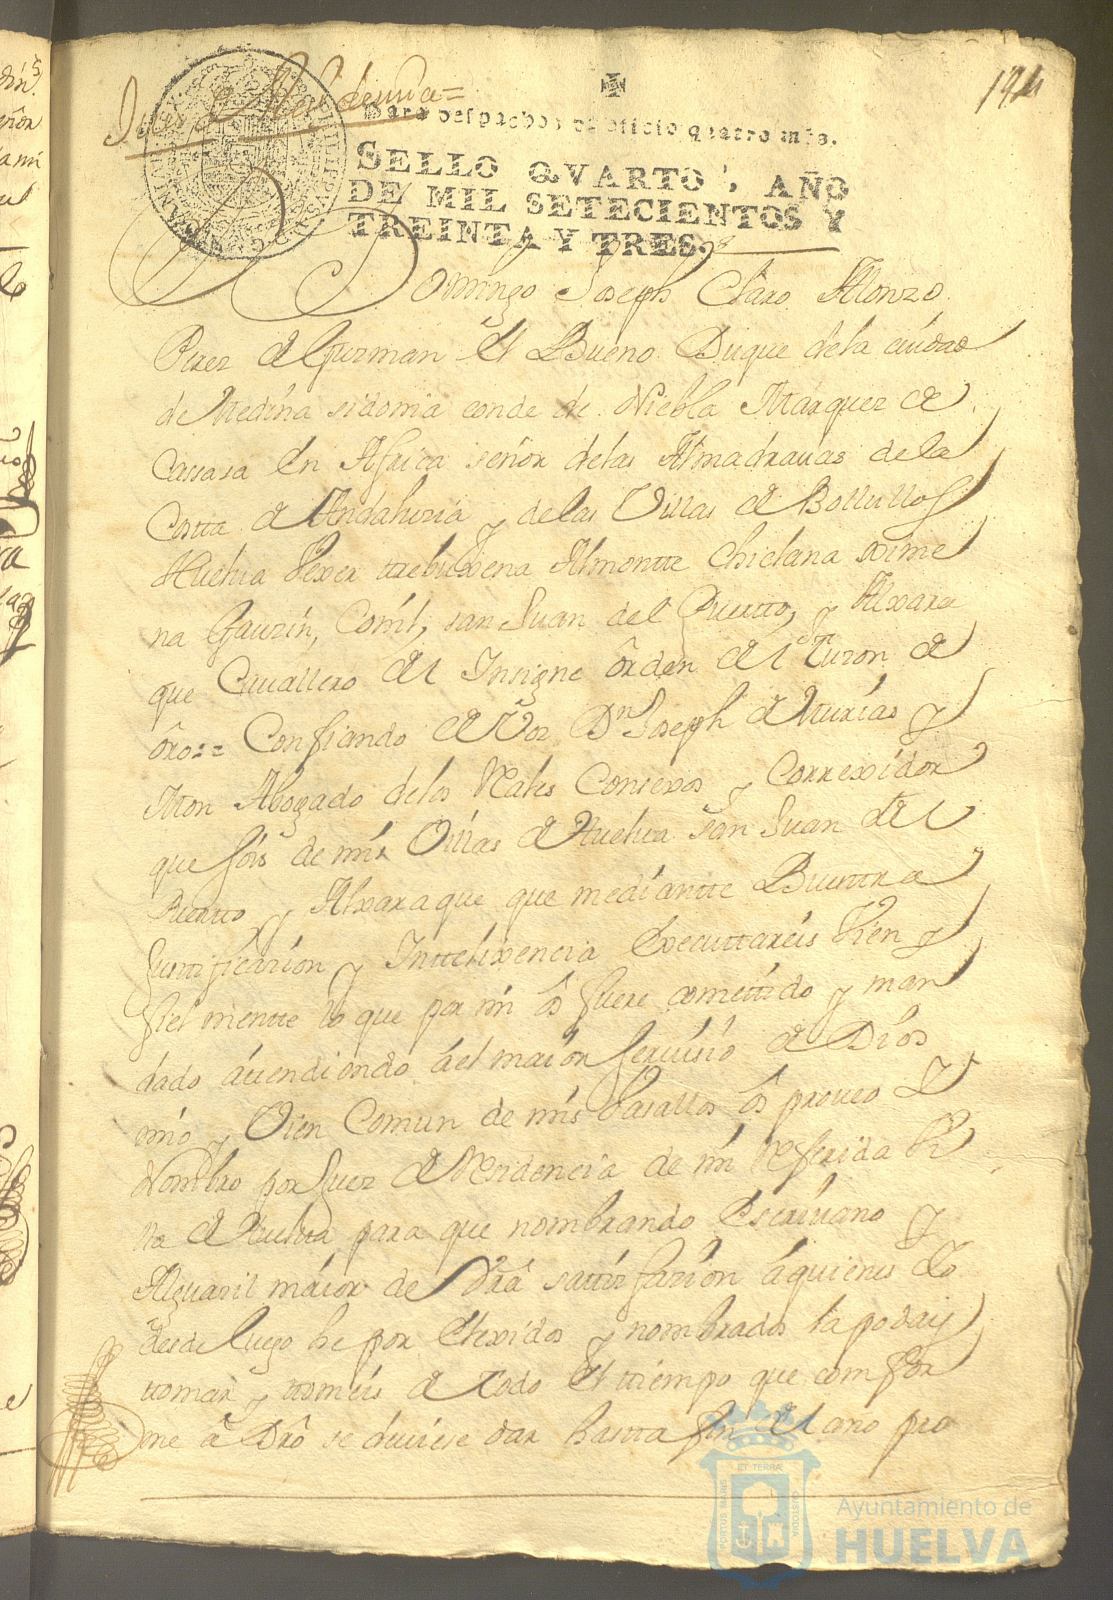 194
Para despachos de oficio quatro mrs.
SELLO QVARTO, AÑO
DE MIL SETECIENTOS Y
TREINTA Y TRES.
Domingo Joseph Claro Alonzo
Perez de Guzman el Bueno Duque de la ciudad
de Medina sidonia conde de Niebla Marquez de
Casasa en Africa señor de las Almadravas de la
Costa de Andaluzia y de las Villas de Bollullos
Huelva Vexer ttrebuxena Almontte Chiclana xime
na Gauzin, Conil, san Juan del Puertto, y Alxara
que Cavallero del Insigne orden del tuzon de
oro:= Confiando de Vos Dn Joseph de Asturias y
Mon Abogado de los Rales Consexos y Correxidor
que sois de mis Villas de Huelva san Juan del
Puertto y Alxaraque que mediantte Buesttra
Justtificazion y Inttelixencia Executtareis bien y
fiel mentte lo que por mi os fuere comettido y man
dado attendiendo a el maior servisio de Dios
mio y Vien Comun de mis Vasallos os proveo y
Nombro por Juez de Residencia de mi referida Vi
lla de Huelva para que nombrando Escrivano y
Alguazil maior de Vra sattisfazion a quienes Yo
desde luego he por Elexidos y nombrados la podais
ttomar y ttomeis de todo el ttiempo que comfor
me a Dro se deviese dar hastta fin del año pro
PORTUS MARIS ET TERRAE CUSTODIA
Ayuntamiento de
HUELVA